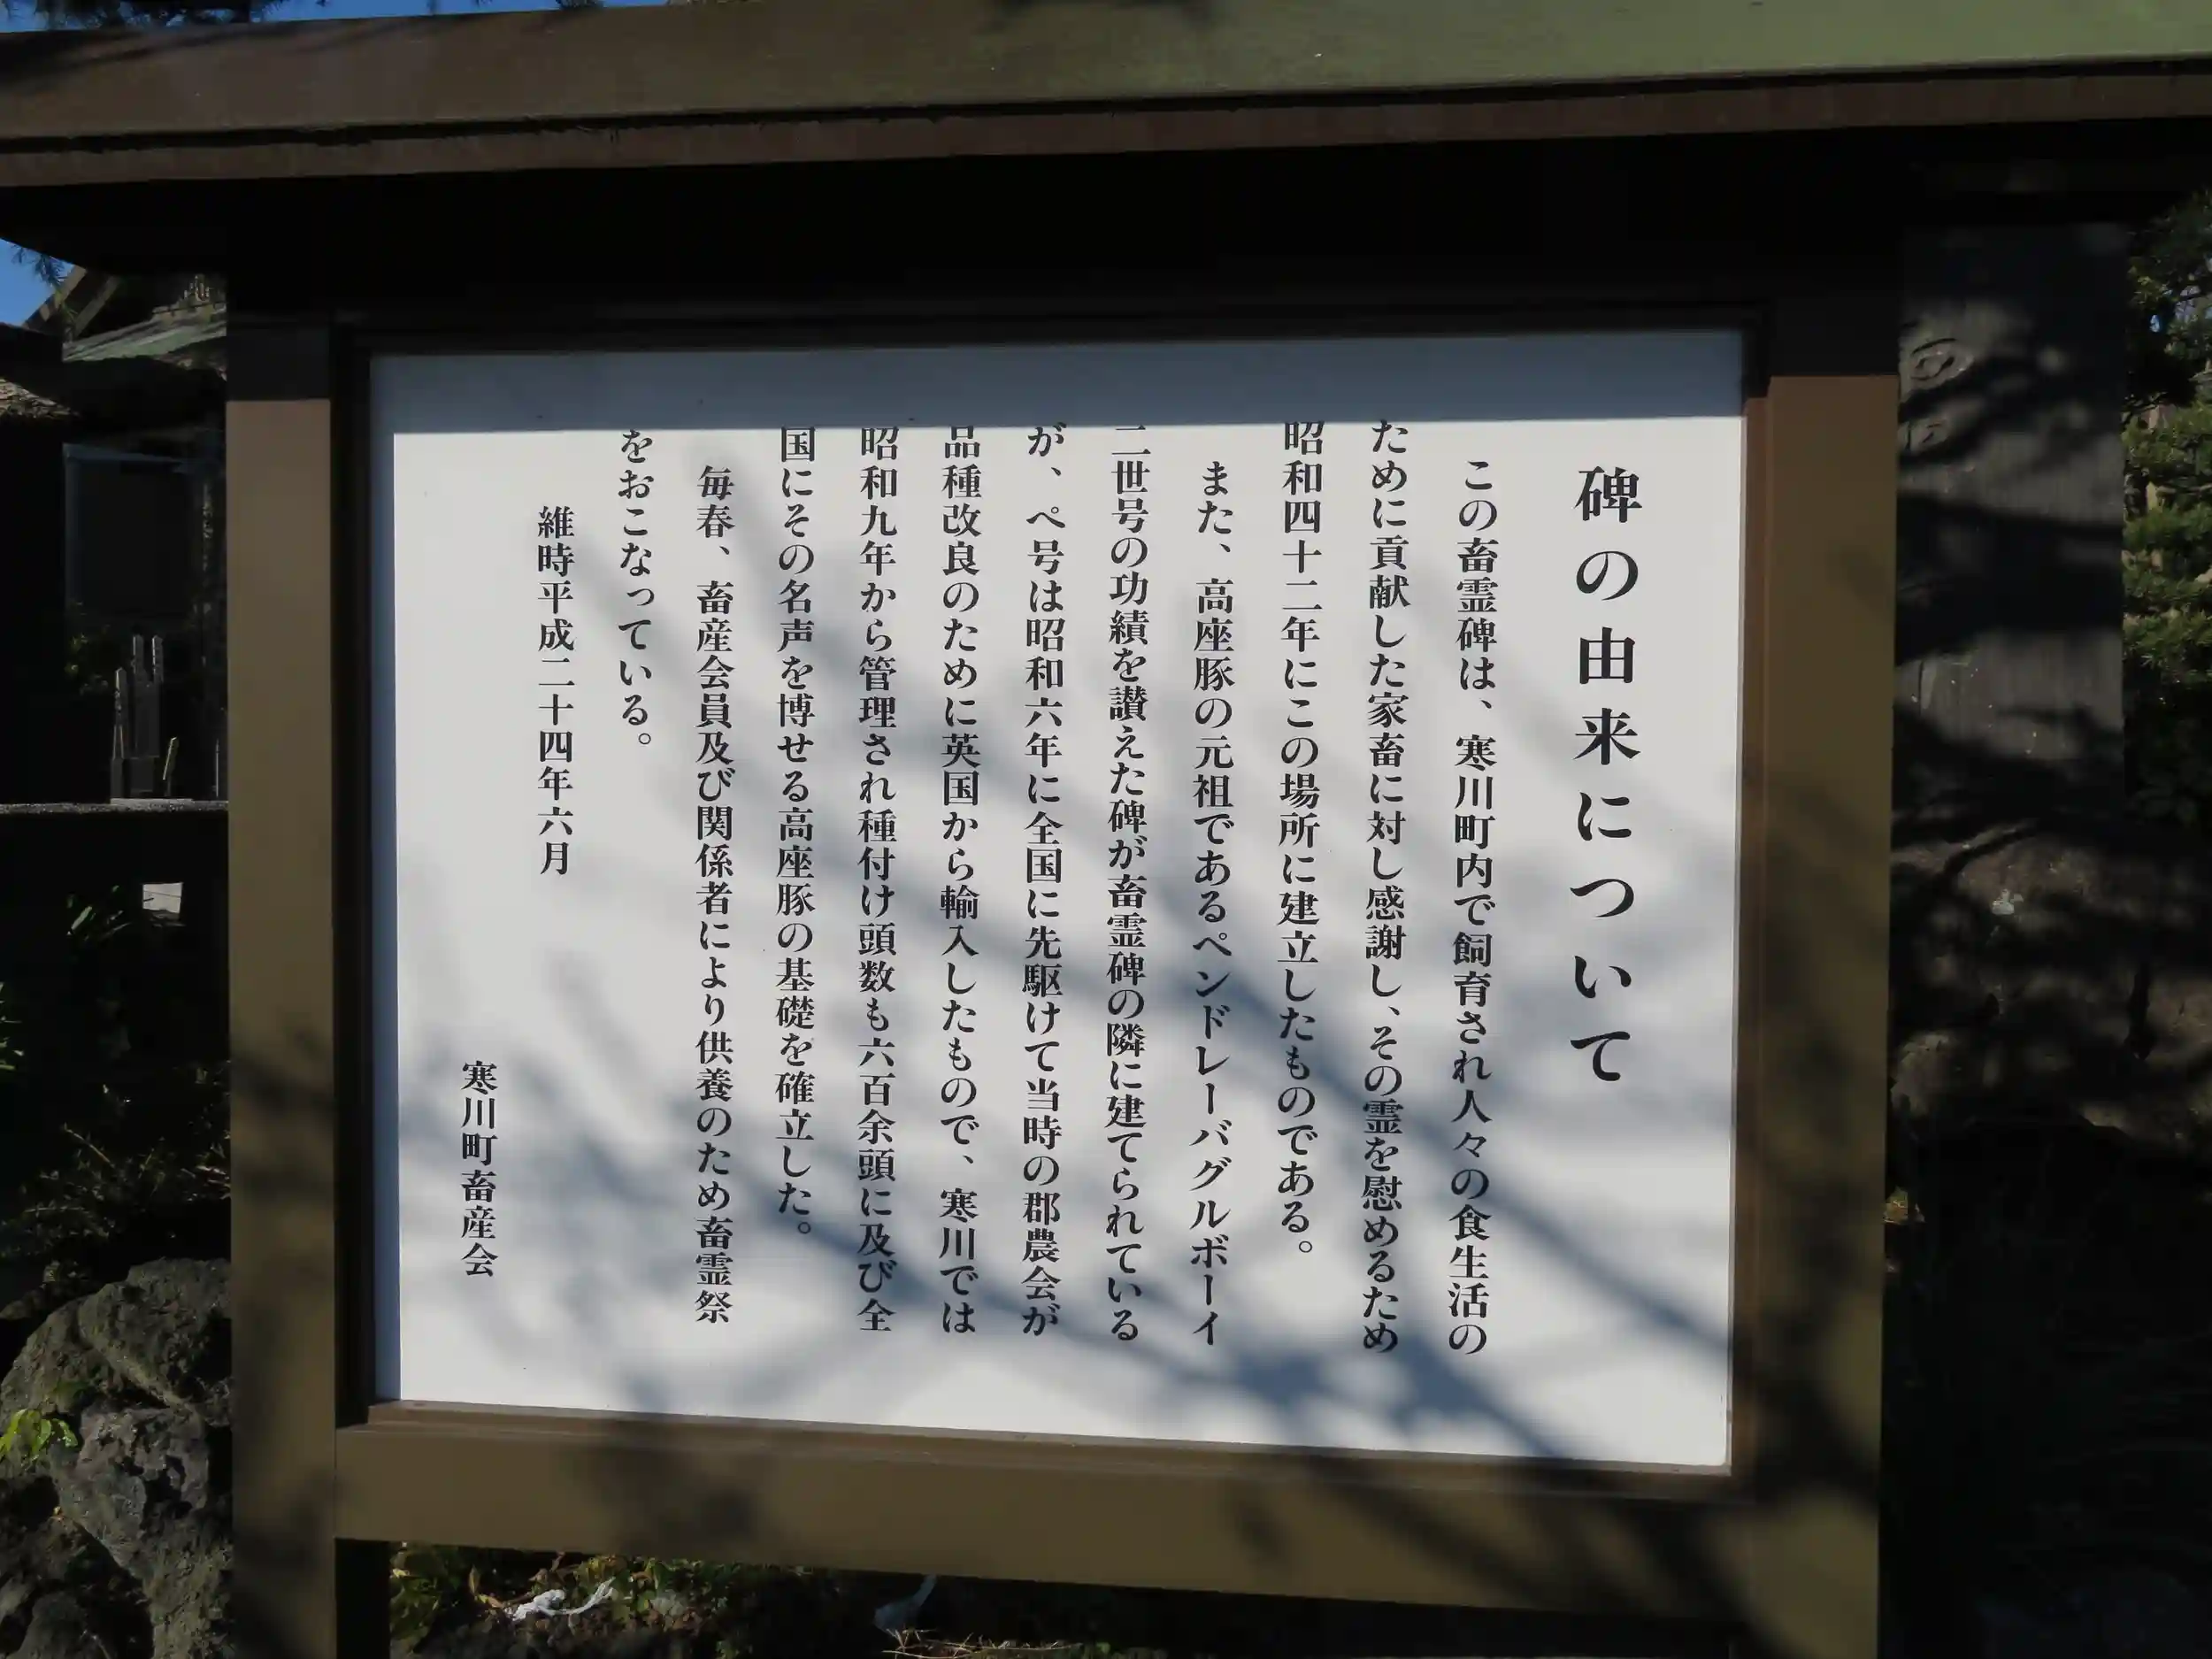 碑の由来について
この畜霊碑は、寒川町内で飼育され人々の食生活の
ために貢献した家畜に対し感謝し、その霊を慰めるため
昭和四十二年にこの場所に建立したものである。
また、高座豚の元祖であるペンドレーバグルボーイ
二世号の功績を讃えた碑が畜霊碑の隣に建てられている
が、ペ号は昭和六年に全国に先駆けて当時の郡農会が
品種改良のために英国から輸入したもので、寒川では
昭和九年から管理され種付け頭数も六百余頭に及び全
国にその名声を博せる高座豚の基礎を確立した。
毎春、畜産会員及び関係者により供養のため畜霊祭
をおこなっている。
維時平成二十四年六月
寒川町畜産会